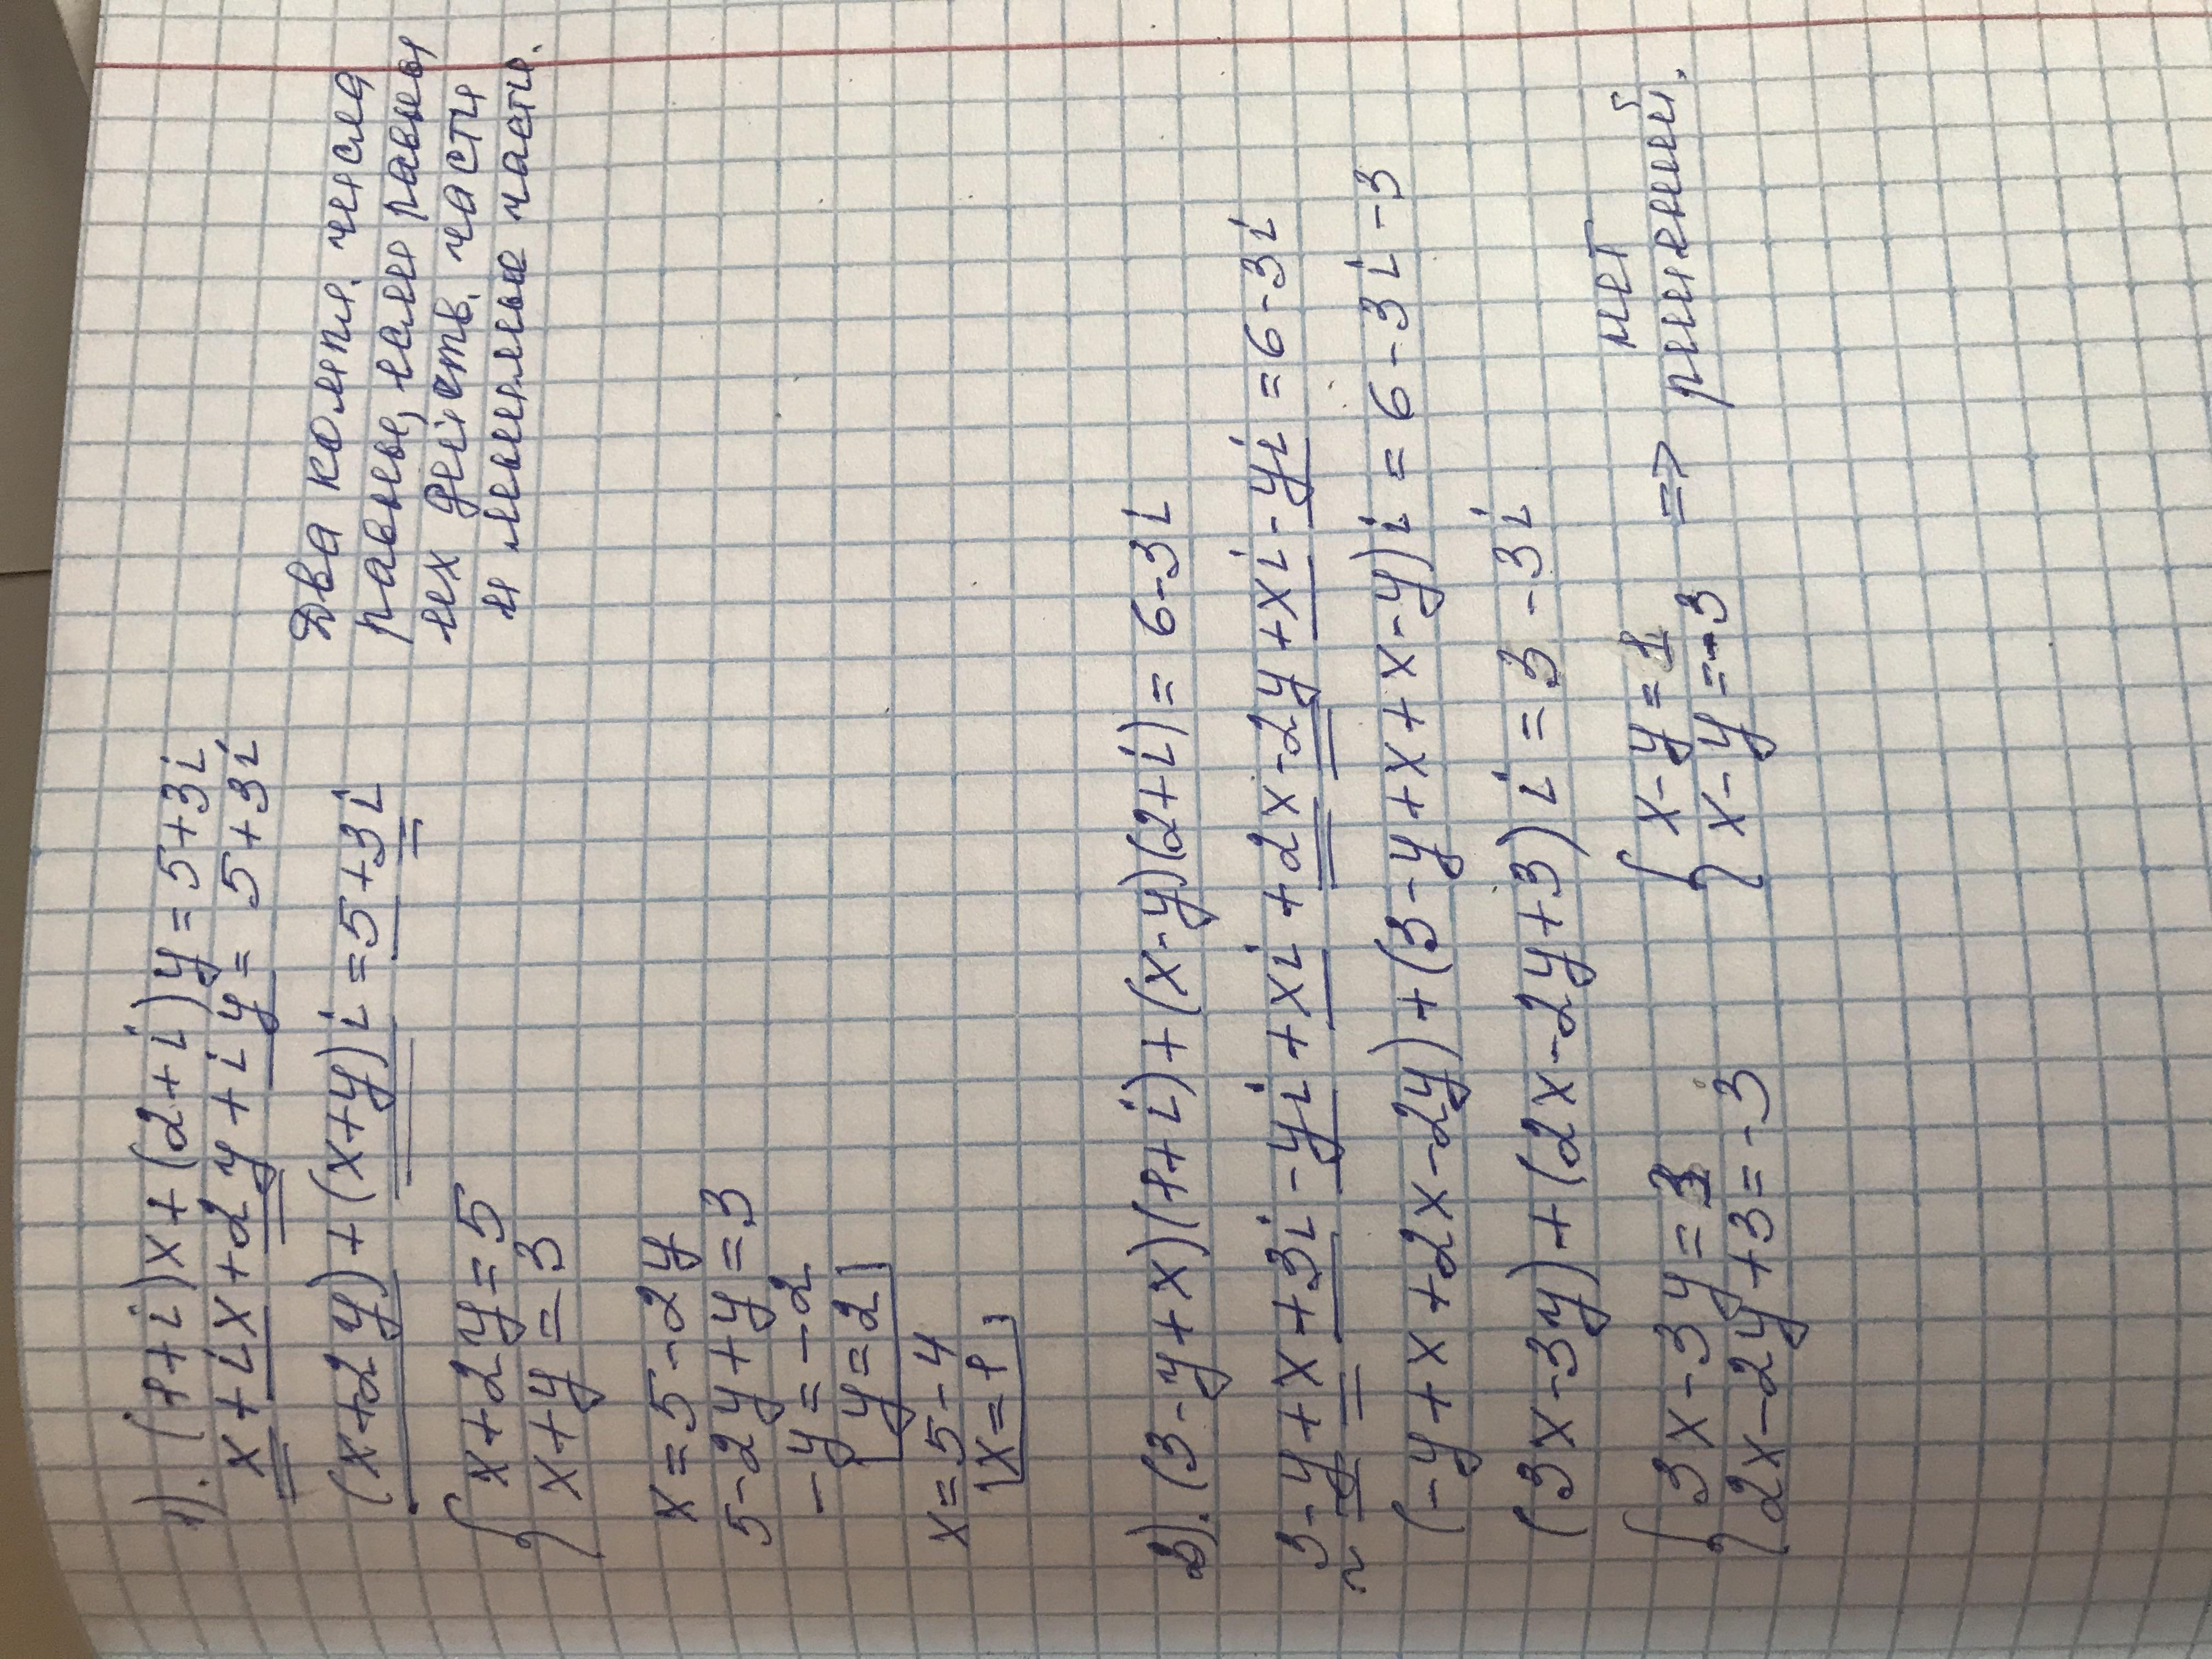 1). (1+i)x+(2+i)y=5+3i
x+ix+2y+iy=5+3i
(x+2y)+(x+y)i=5+3i
Два компл. числа
равны, если равны
их действ. части
и мнимые части.
{ x+2y=5
x+y=3
x=5-2y
5-2y+y=3
-y=-2
y=2
x=5-4
x=1
3). (3-y+x)(1+i)+(x-y)(2+i)=6-3i
3-y+x+3i-yi+xi+2x-2y+xi-yi=6-3i
(-y+x+2x-2y)+(3-y+x+x-y)i=6-3i-3
(3x-3y)+(2x-2y+3)i=3-3i
{ 3x-3y=3 { x-y=1 => нет
2x-2y+3=-3 x-y=-3 решений.